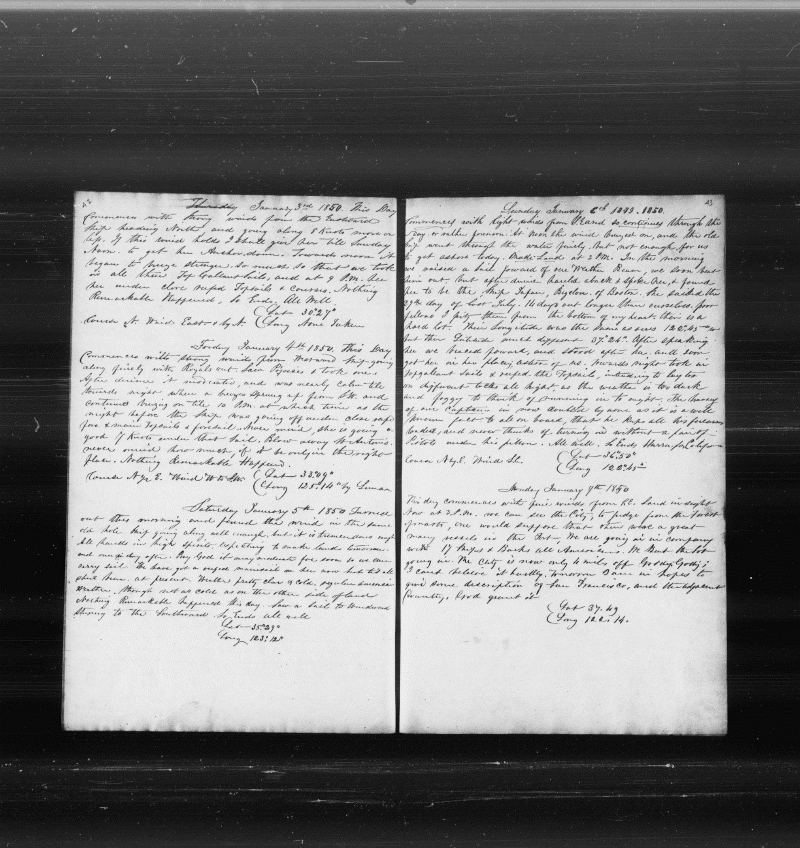 Thursday January 3rd 1850. This Day
Commences with strong winds from the Eastward
Ship heading North and going along 8 Knots more or
less. If this wind holds I shall give her till Sunday
Noon. to get her Anchor down. Towards noon it
began to breeze stronger. so much so that we took
in all three Top Gallant sails, and at 9 P.M. have
her under close reefed Topsails & Courses. Nothing
Remarkable Happened, So Ends, All Well
Lat 30°27"
Course N. Wind East Long None Taken
Friday January 4th 1850. This Day
Commences with strong winds from Ship going
along finely with Royals out. Saw & took one.
After dinner it moderated, and was nearly calm till
towards night when a breeze sprung up from SW. and
continued breezing on till 10 P.M. at which time as the
night before the Ship was going off under close reefed
fore & main Topsails & foresail. Never mind she is going a
good 7 Knots under that Sail. Blow away St Antonio.
never mind how much, if it be only in the right
place. Nothing Remarkable Happened.
Lat 33°09"
Course N by E. Wind W to SW. Long 125°14" by Lunar
Saturday January 5th 1850 Turned
out this morning and found the wind in the same
old hole Ship going along well enough, but it is tremendous rough
All hands in high spirits expecting to make land tomorrow
and one day after. Pray God it may moderate for soon so we can
carry sail. We have got a on her now but do all
at present. Weather pretty clear & cold, regular
weather, though not as cold as on the other side of land
Nothing Remarkable happened this day. Saw a Sail to windward
Steering to the Southward So Ends All well
Lat 35°29"
Long 123°12"
43
Sunday January 6th 1850.
Commences with light winds from and so continues through the
day or rather forenoon. At Noon the wind breezed on, and the old
ship went through the water finely but not enough for us
to get ashore today. Made Land at 2 P.M. In the morning
we raised a Sail forward of our Weather Beam, we soon but
him out, but after dinner hauled aback & spoke her, & found
her to be the Ship , Bigelow, of Boston. She sailed the
27th day of last July. 16 days out longer than ourselves, poor
fellows I pity them from the bottom of my heart. their is a
hard lot. Their Longitude was the same as ours 122°45"
but their Latitude much different 37.26" After speaking
her we braced forward, and stood after her, and soon
got her in her place, astern of us. Towards night took in
Topgallant Sails & reefed the Topsails, intending to lay too
on different tacks all Night, as the weather is too dark
and foggy to think of running in to night. The bravery
of our Captain is now doubted by none as it is a well
known fact to all on board, that he keeps all his firearms
loaded, and never thinks of turning in without a pair of
Pistols under his pillow. All well, So Ends
Lat 36°50"
Course N by E. Wind SE. Long 122°45"
Monday January 7th 1850
This day commences with fine winds from SE. Land in sight
Now at 2 P.M. we can see the City; to judge from the forest
of masts, one would suppose that there were a great
many vessels in the Port. We are going in in company
with 17 Ships & Barks all Americans. We Beat the lot
going in. The City is now only 4 miles off
I can't believe it hardly. Tomorrow I am in hopes to
give some description of San Francisco, and the adjacent
Country. God grant it
Lat 37.49
Long 122.14.